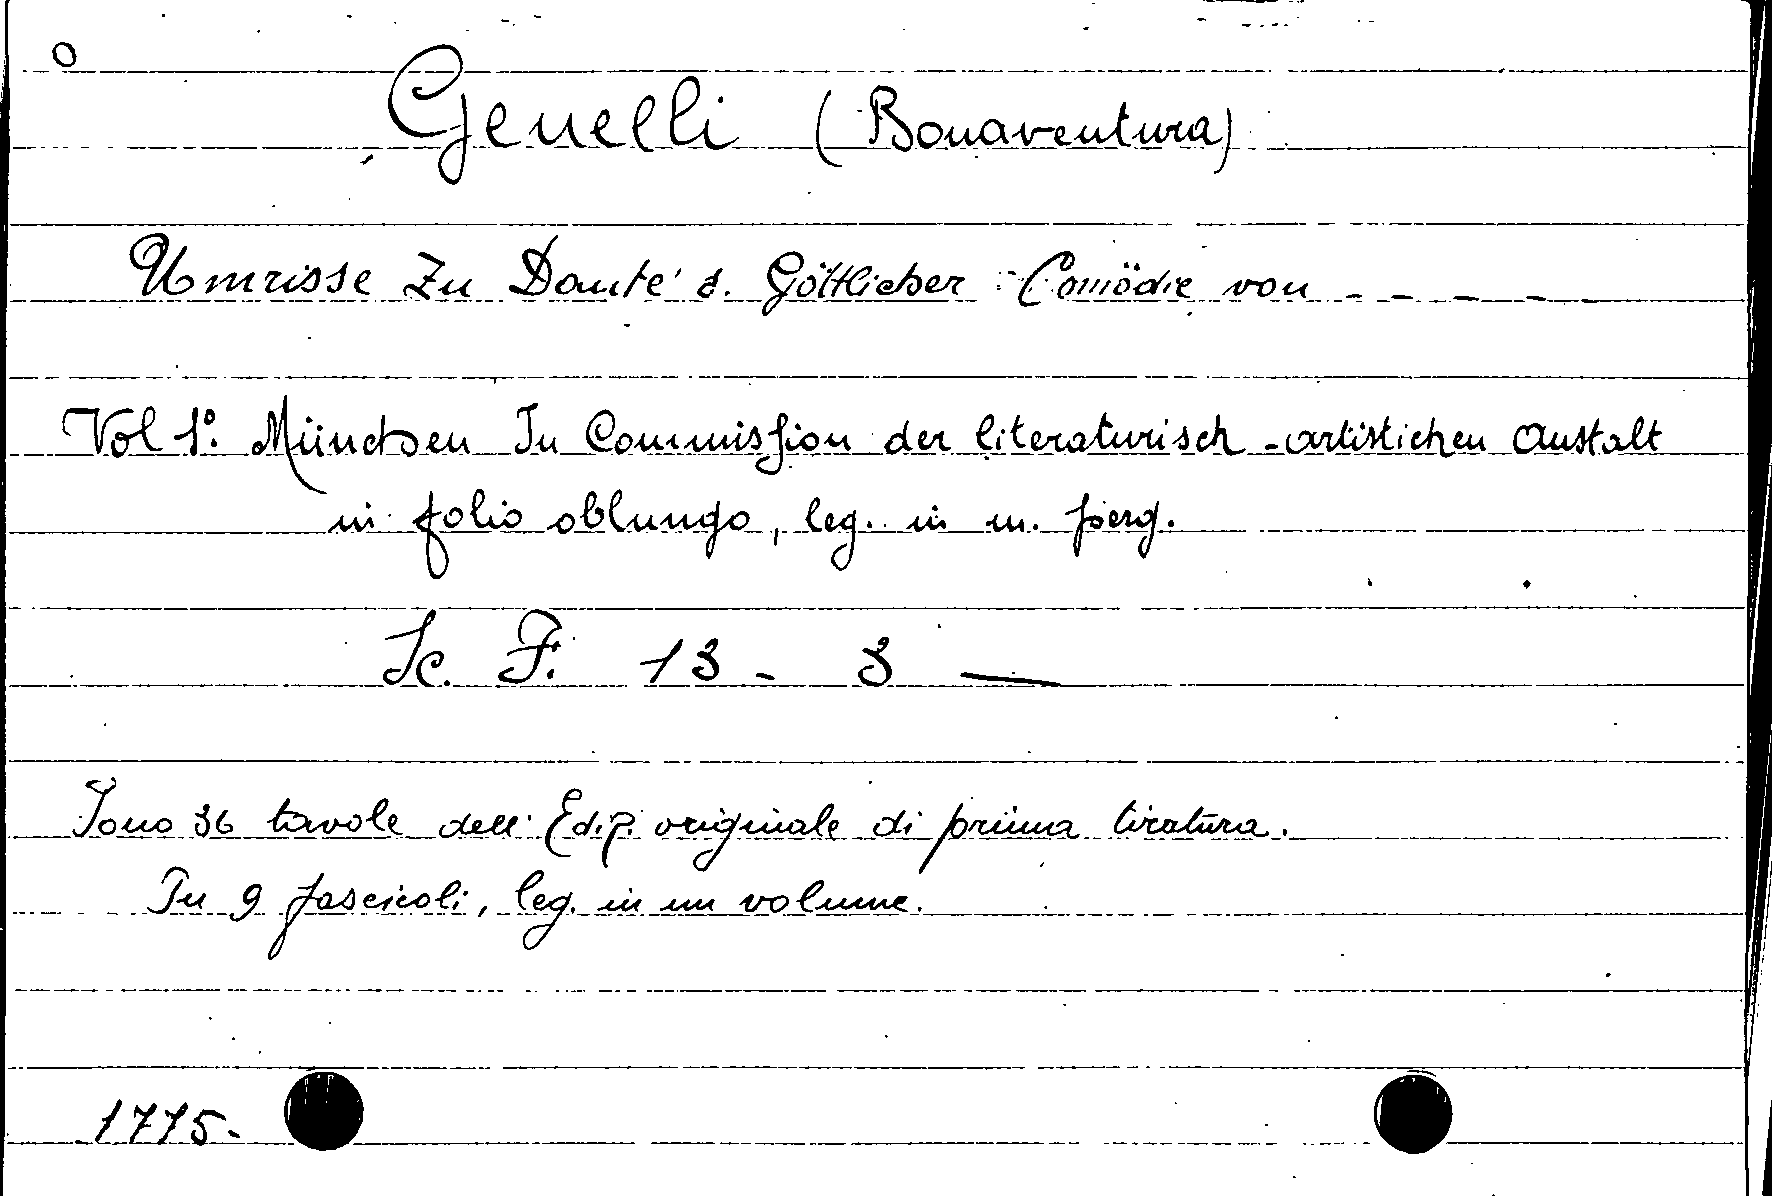 o
Genelli (Bonaventura)
Umrisse zu Dante's. Göttlicher Comödie von - - - - -
Vol 1º. München In Commission der literaturisch-artistichen Anstalt
in folio oblungo, leg. in m. perg.
Sc. F. 13 - 3 —
Sono 36 tavole dell' Ediz. originale di prima tiratura.
In 9 fascicoli, leg. in un volume.
1775-